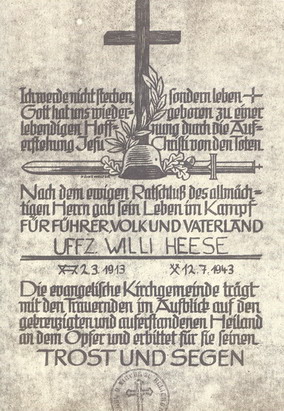 Ich werde nicht sterben, sondern leben +
Gott hat uns wieder geboren zu einer
lebendigen Hoffnung durch die Auf=
erstehung Jesu Christi von den Toten.
Nach dem ewigen Ratschluß des allmäch=
tigen Herrn gab sein Leben im Kampf
FÜR FÜHRER VOLK UND VATERLAND
UFFZ. WILLI HEESE
2.3.1913 12.7.1943
Die evangelische Kirchgemeinde trägt
mit den Trauernden im Aufblick auf den
gekreuzigten und auferstandenen Heiland
an dem Opfer und erbittet für sie seinen
TROST UND SEGEN